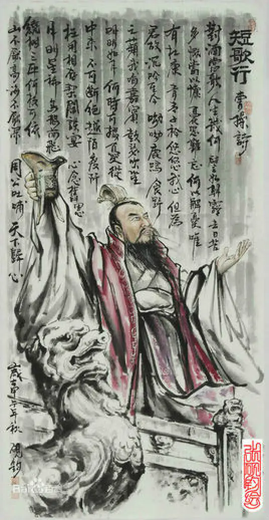 短歌行
曹操詩
對酒當歌 人生幾何 譬如朝露 去日苦
多 慨當以慷 憂思難忘 何以解憂 唯
有杜康 青青子衿 悠悠我心 但為
君故 沉吟至今 呦呦鹿鳴 食野
之蘋 我有嘉賓 鼓瑟吹笙
明明如月 何時可掇 憂從
中來 不可斷絕 越陌度阡
枉用相存 契闊談讌 心念舊恩
月明星稀 烏鵲南飛
繞樹三匝 何枝可依
山不厭高 海不厭深 周公吐哺 天下歸心
年秋